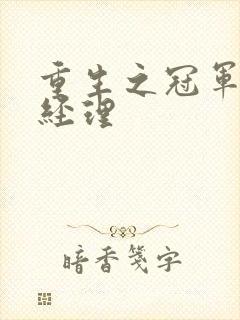 重生之冠軍
經理
暗香箋字